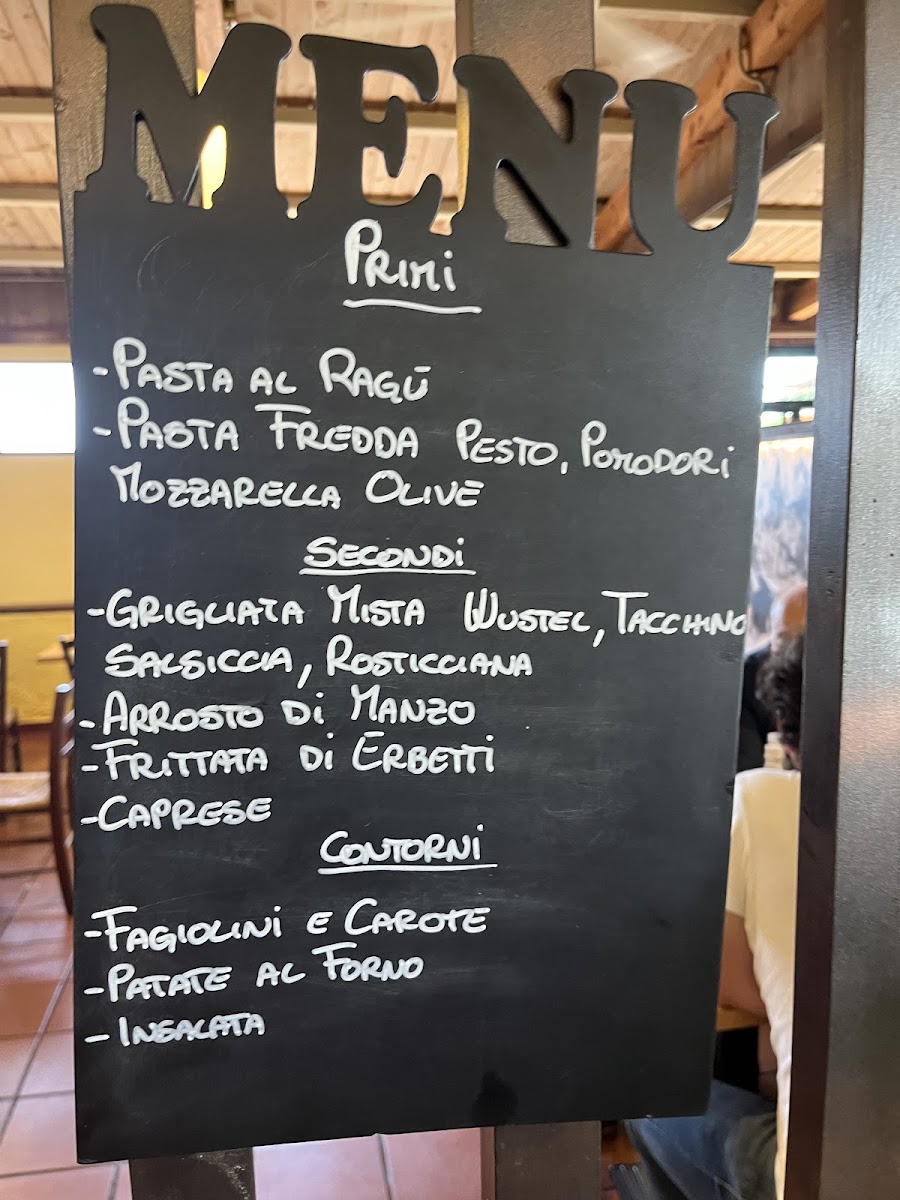 MENU
PRIMI
- PASTA AL RAGŪ
- PASTA FREDDA PESTO, POMODORI
MOZZARELLA OLIVE
SECONDI
- GRIGLIATA MISTA WUSTEL, TACCHINO
SALSICCIA, ROSTICCIANA
- ARROSTO DI MANZO
- FRITTATA DI ERBETTI
- CAPRESE
CONTORNI
- FAGIOLINI E CAROTE
- PATATE AL FORNO
- INSALATA